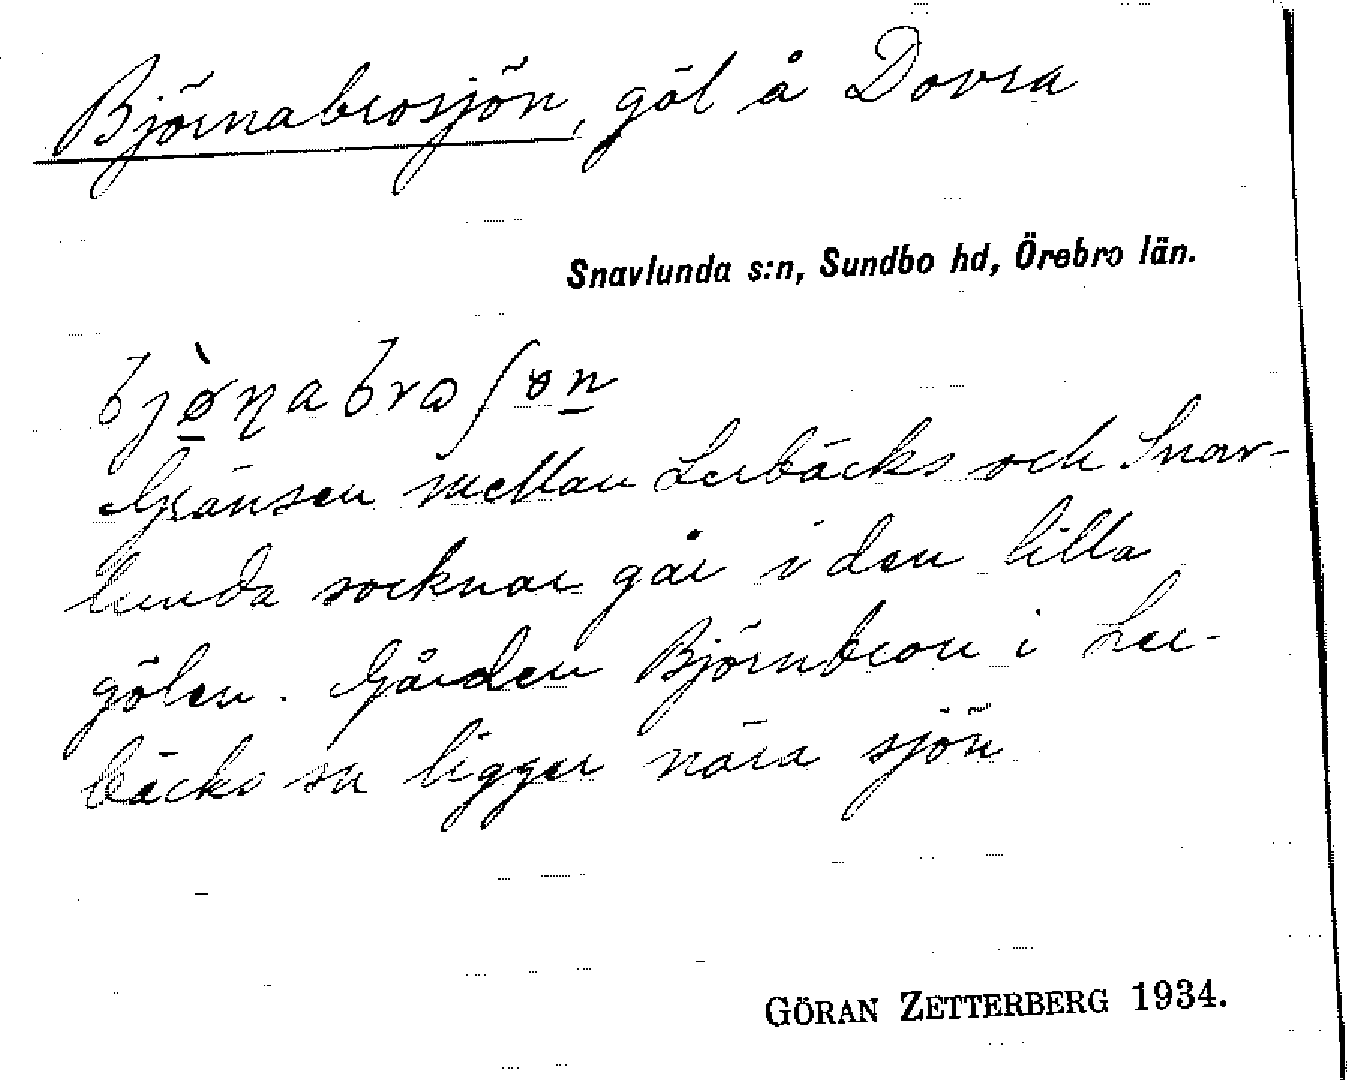 Björnabrosjön, göl å Dovra
Snavlunda s:n, Sundbo hd, Örebro län.
Gränsen mellan Lerbäcks och Snav-
lunda socknar går i den lilla
gölen. Gården Björnbron i Ler-
bäcks sn ligger nära sjön
GÖRAN ZETTERBERG 1934.